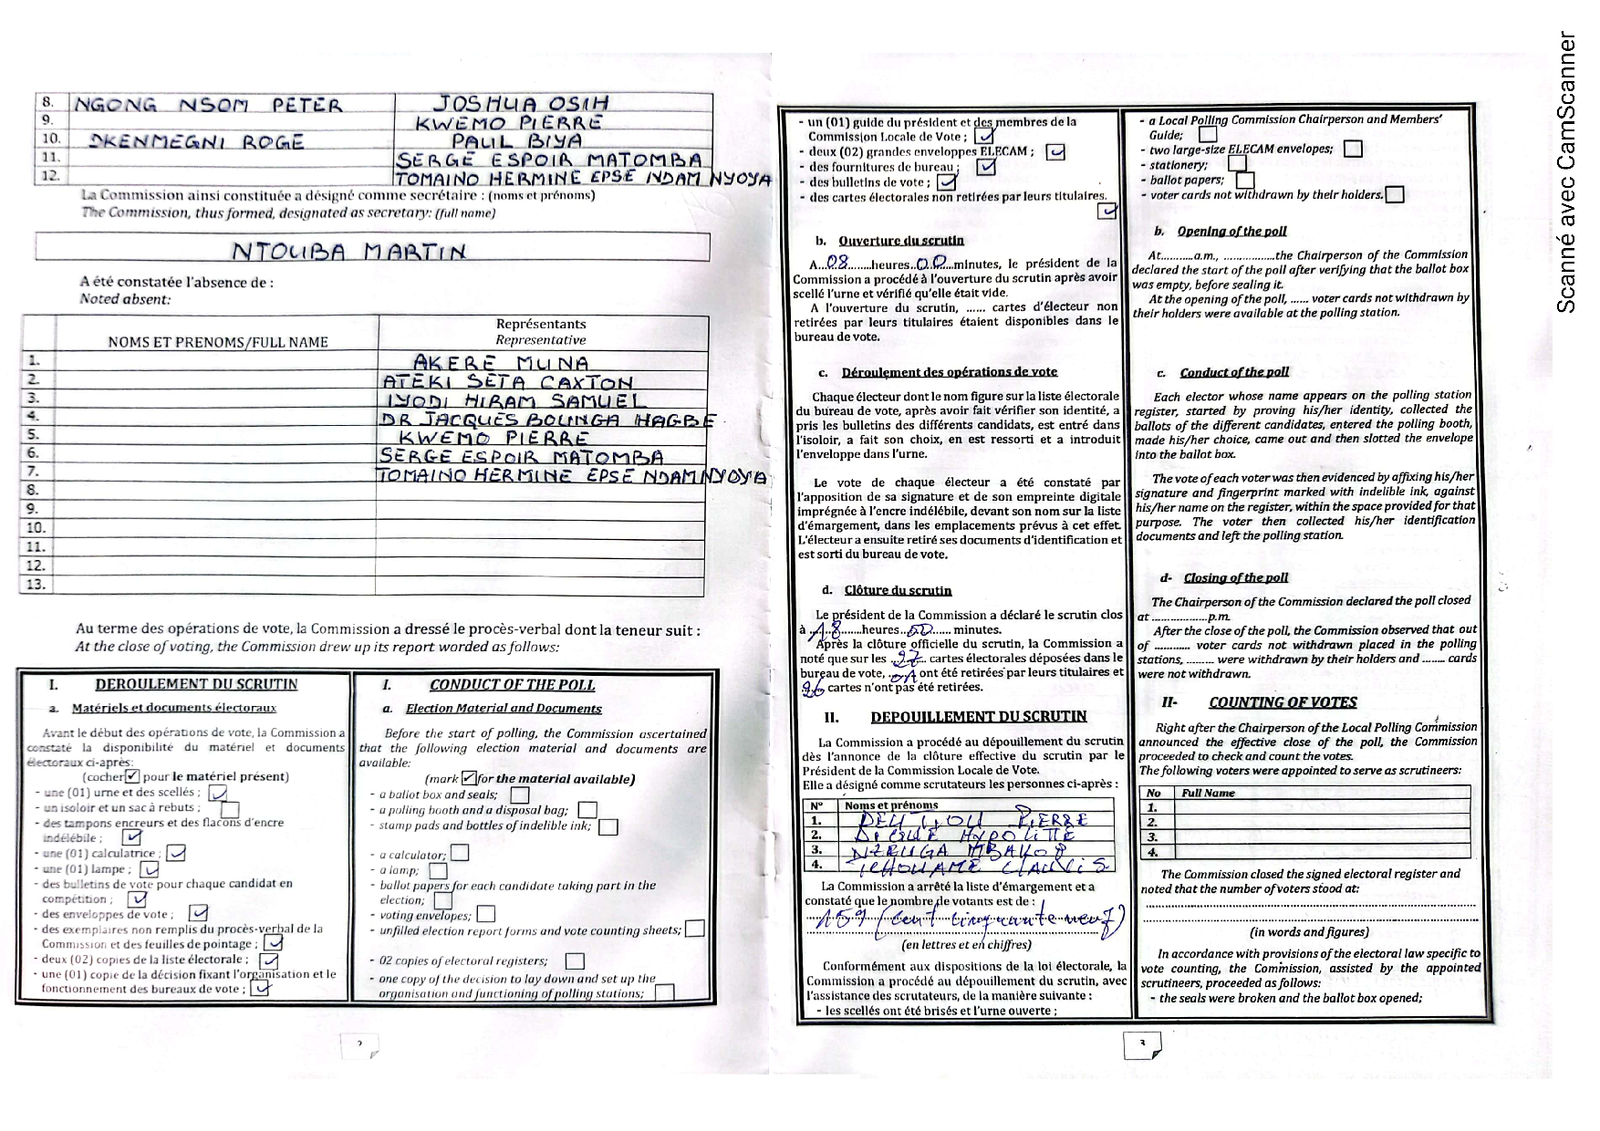 8. NGONG NSOM PETER JOSHUA OSIH
9. KWEMO PIERRE
10. DKENMEGNI ROGE PAUL BIYA
11. SERGE ESPOIR MATOMBA
12. TOMAINO HERMINE EPSE NDAM NYOYA
La Commission ainsi constituée a désigné comme secrétaire : (noms et prénoms)
The Commission, thus formed, designated as secretary: (full name)
NTOUBA MARTIN
A été constatée l'absence de :
Noted absent:
NOMS ET PRENOMS/FULL NAME
Représentants
Representative
1. AKERE MUNA
2. ATEKI SETA CAXTON
3. IYODI HIRAM SAMUEL
4. DR JACQUES BOUNGA HAGBE
5. KWEMO PIERRE
6. SERGE ESPOIR MATOMBA
7. TOMAINO HERMINE EPSE NDAM NYOYA
8.
9.
10.
11.
12.
13.
Au terme des opérations de vote, la Commission a dressé le procès-verbal dont la teneur suit :
At the close of voting, the Commission drew up its report worded as follows:
I. DEROULEMENT DU SCRUTIN
a. Matériels et documents électoraux
Avant le début des opérations de vote, la Commission a
constaté la disponibilité du matériel et documents
électoraux ci-après:
(cocher ✓ pour le matériel présent)
- une (01) urne et des scellés ; ✓
- un isoloir et un sac à rebuts ;
- des tampons encreurs et des flacons d'encre
indélébile ; ✓
- une (01) calculatrice ; ✓
- une (01) lampe ; ✓
- des bulletins de vote pour chaque candidat en
compétition ; ✓
- des enveloppes de vote ; ✓
- des exemplaires non remplis du procès-verbal de la
Commission et des feuilles de pointage ; ✓
- deux (02) copies de la liste électorale ; ✓
- une (01) copie de la décision fixant l'organisation et le
fonctionnement des bureaux de vote ; ✓
I. CONDUCT OF THE POLL
a. Election Material and Documents
Before the start of polling, the Commission ascertained
that the following election material and documents are
available:
(mark ✓ for the material available)
- a ballot box and seals;
- a polling booth and a disposal bag;
- stamp pads and bottles of indelible ink;
- a calculator;
- a lamp;
- ballot papers for each candidate taking part in the
election;
- voting envelopes;
- unfilled election report forms and vote counting sheets;
- 02 copies of electoral registers;
- one copy of the decision to lay down and set up the
organisation and functioning of polling stations;
2
- un (01) guide du président et des membres de la
Commission Locale de Vote ; ✓
- deux (02) grandes enveloppes ELECAM ; ✓
- des fournitures de bureau ; ✓
- des bulletins de vote ; ✓
- des cartes électorales non retirées par leurs titulaires.
✓
b. Ouverture du scrutin
A...08......heures..00...minutes, le président de la
Commission a procédé à l'ouverture du scrutin après avoir
scellé l'urne et vérifié qu'elle était vide.
A l'ouverture du scrutin, ...... cartes d'électeur non
retirées par leurs titulaires étaient disponibles dans le
bureau de vote.
c. Déroulement des opérations de vote
Chaque électeur dont le nom figure sur la liste électorale
du bureau de vote, après avoir fait vérifier son identité, a
pris les bulletins des différents candidats, est entré dans
l'isoloir, a fait son choix, en est ressorti et a introduit
l'enveloppe dans l'urne.
Le vote de chaque électeur a été constaté par
l'apposition de sa signature et de son empreinte digitale
imprégnée à l'encre indélébile, devant son nom sur la liste
d'émargement, dans les emplacements prévus à cet effet.
L'électeur a ensuite retiré ses documents d'identification et
est sorti du bureau de vote.
d. Clôture du scrutin
Le président de la Commission a déclaré le scrutin clos
à ..18......heures..00...... minutes.
Après la clôture officielle du scrutin, la Commission a
noté que sur les ..27.. cartes électorales déposées dans le
bureau de vote, ..01 ont été retirées par leurs titulaires et
26 cartes n'ont pas été retirées.
II. DEPOUILLEMENT DU SCRUTIN
La Commission a procédé au dépouillement du scrutin
dès l'annonce de la clôture effective du scrutin par le
Président de la Commission Locale de Vote.
Elle a désigné comme scrutateurs les personnes ci-après :
N° Noms et prénoms
1. PIERRE
2. HYPOLITTE
3.
4.
La Commission a arrêté la liste d'émargement et a
constaté que le nombre de votants est de :
159 (cent cinquante neuf)
(en lettres et en chiffres)
Conformément aux dispositions de la loi électorale, la
Commission a procédé au dépouillement du scrutin, avec
l'assistance des scrutateurs, de la manière suivante :
- les scellés ont été brisés et l'urne ouverte ;
- a Local Polling Commission Chairperson and Members'
Guide;
- two large-size ELECAM envelopes;
- stationery;
- ballot papers;
- voter cards not withdrawn by their holders.
b. Opening of the poll
At..........a.m., ................the Chairperson of the Commission
declared the start of the poll after verifying that the ballot box
was empty, before sealing it.
At the opening of the poll, ...... voter cards not withdrawn by
their holders were available at the polling station.
c. Conduct of the poll
Each elector whose name appears on the polling station
register, started by proving his/her identity, collected the
ballots of the different candidates, entered the polling booth,
made his/her choice, came out and then slotted the envelope
into the ballot box.
The vote of each voter was then evidenced by affixing his/her
signature and fingerprint marked with indelible ink, against
his/her name on the register, within the space provided for that
purpose. The voter then collected his/her identification
documents and left the polling station.
d- Closing of the poll
The Chairperson of the Commission declared the poll closed
at .................p.m.
After the close of the poll, the Commission observed that out
of ........... voter cards not withdrawn placed in the polling
stations, ......... were withdrawn by their holders and ....... cards
were not withdrawn.
II- COUNTING OF VOTES
Right after the Chairperson of the Local Polling Commission
announced the effective close of the poll, the Commission
proceeded to check and count the votes.
The following voters were appointed to serve as scrutineers:
No Full Name
1.
2.
3.
4.
The Commission closed the signed electoral register and
noted that the number of voters stood at:
(in words and figures)
In accordance with provisions of the electoral law specific to
vote counting, the Commission, assisted by the appointed
scrutineers, proceeded as follows:
- the seals were broken and the ballot box opened;
3
Scanné avec CamScanner